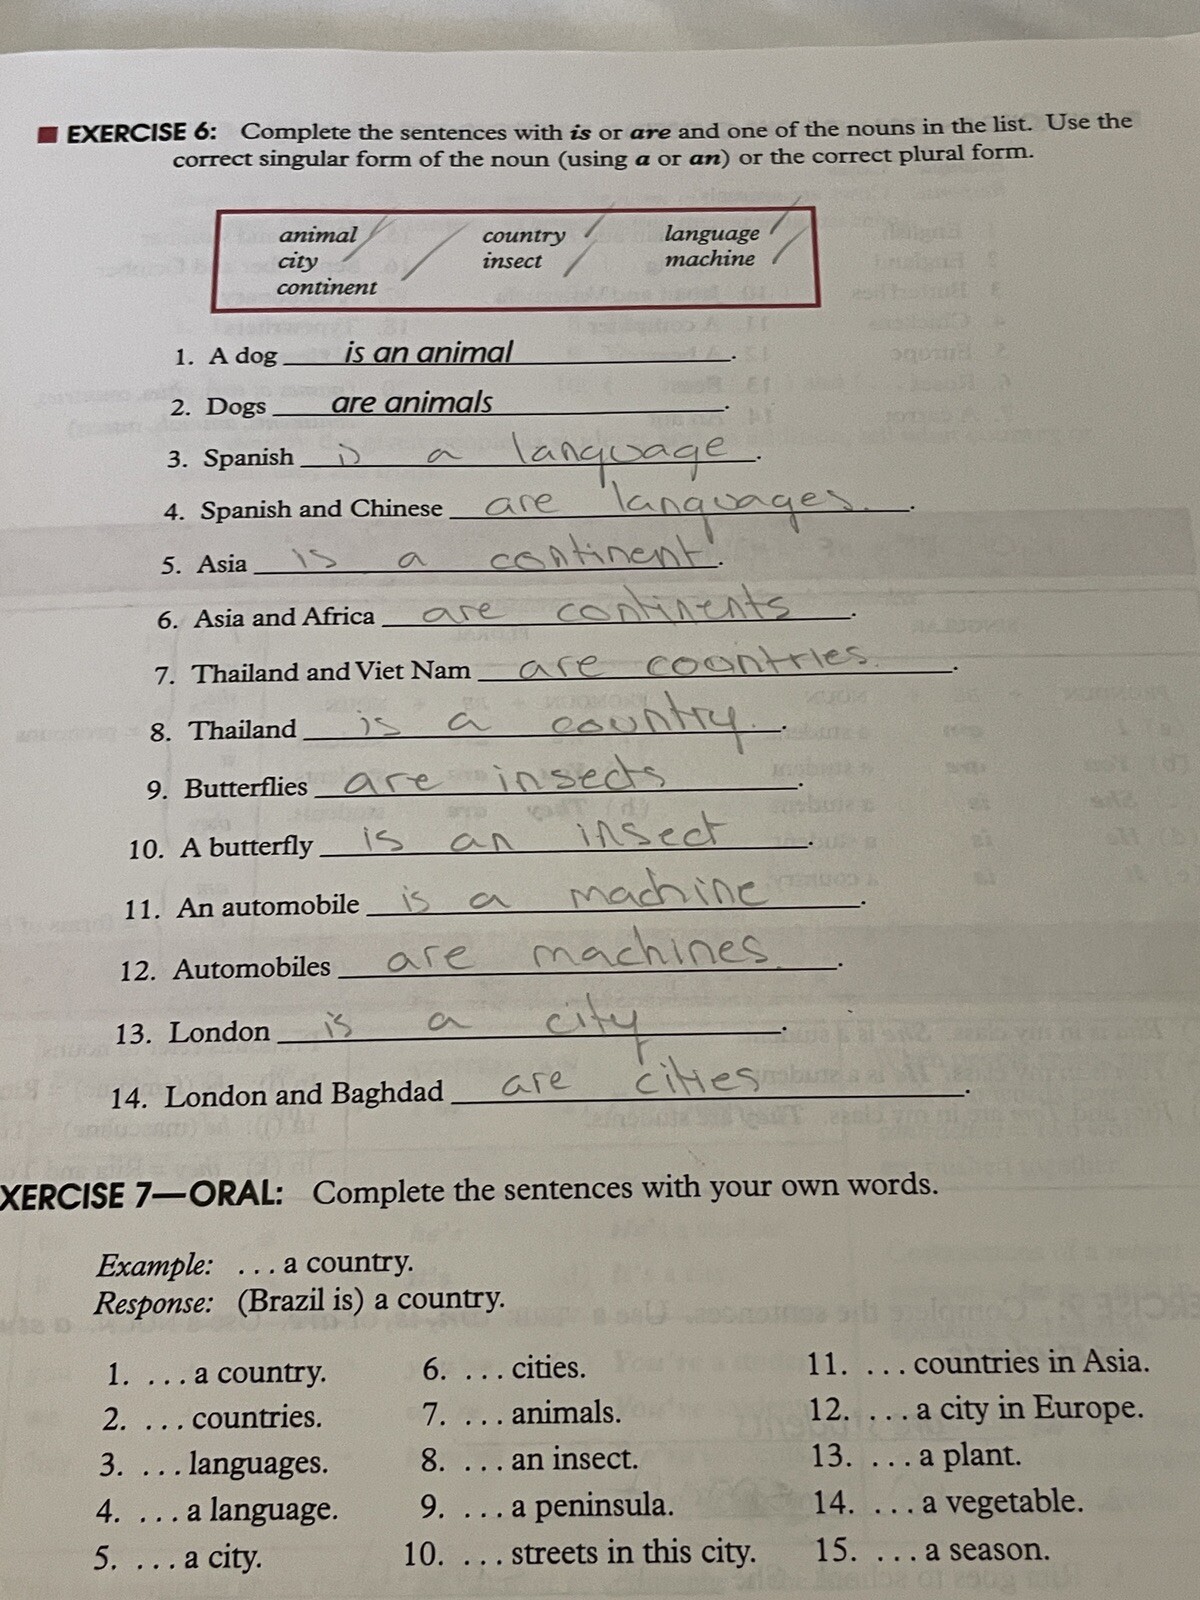 EXERCISE 6: Complete the sentences with is or are and one of the nouns in the list. Use the
correct singular form of the noun (using a or an) or the correct plural form.
animal country language
city insect machine
continent
1. A dog is an animal.
2. Dogs are animals.
3. Spanish is a language.
4. Spanish and Chinese are languages.
5. Asia is a continent.
6. Asia and Africa are continents.
7. Thailand and Viet Nam are countries.
8. Thailand is a country.
9. Butterflies are insects.
10. A butterfly is an insect.
11. An automobile is a machine.
12. Automobiles are machines.
13. London is a city.
14. London and Baghdad are cities.
XERCISE 7—ORAL: Complete the sentences with your own words.
Example: ... a country.
Response: (Brazil is) a country.
1. ... a country.
2. ... countries.
3. ... languages.
4. ... a language.
5. ... a city.
6. ... cities.
7. ... animals.
8. ... an insect.
9. ... a peninsula.
10. ... streets in this city.
11. ... countries in Asia.
12. ... a city in Europe.
13. ... a plant.
14. ... a vegetable.
15. ... a season.